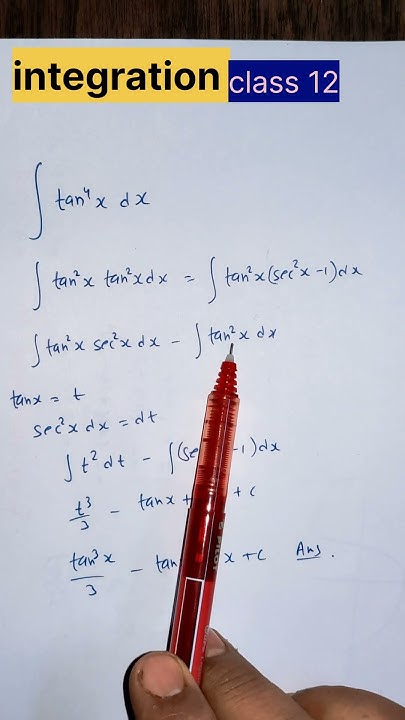 integration class 12
∫ tan⁴x dx
∫ tan²x tan²x dx = ∫ tan²x (sec²x - 1) dx
∫ tan²x sec²x dx - ∫ tan²x dx
tanx = t
sec²x dx = dt
∫ t² dt - ∫ (se -1) dx
t³/3 - tanx + + c
tan³x/3 - tan x + c Ans.